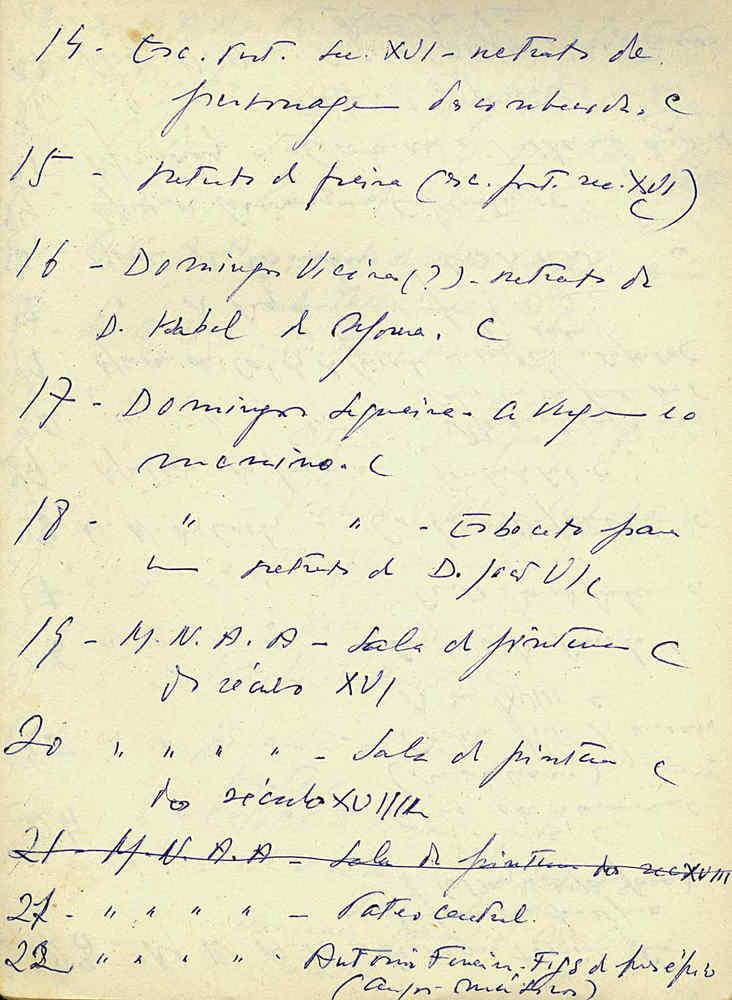 14 - Esc. Port. Sec. XVI - retrato de
personagem desconhecida. C
15 - retrato de freira (esc. port. sec. XVI)
C
16 - Domingos Vieira (?) - retrato de
D. Isabel de Moura. C
17 - Domingos Sequeira - A Virgem e o
menino. C
18 - " " - Esboceto para
um retrato de D. João VI C
19 - M. N. A. A - Sala de pintura C
do século XVI
20 " " " " - Sala de pintura C
do século XVII
21 - M. N. A. A - Sala de pintura do sec XVIII
21 - " " " " - Pateo central.
22 " " " " - Antonio Ferreira - Figs de presépio
(Anjos Músicos)